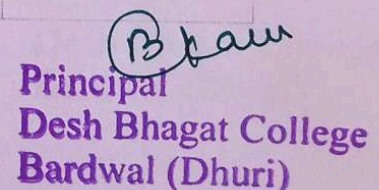 Principal
Desh Bhagat College
Bardwal (Dhuri)